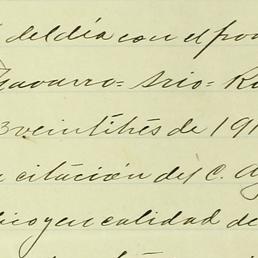 del día con el pro
Navarro= Srio= R
3 veintitrés de 191
citación del C. Ag
lico y en calidad de